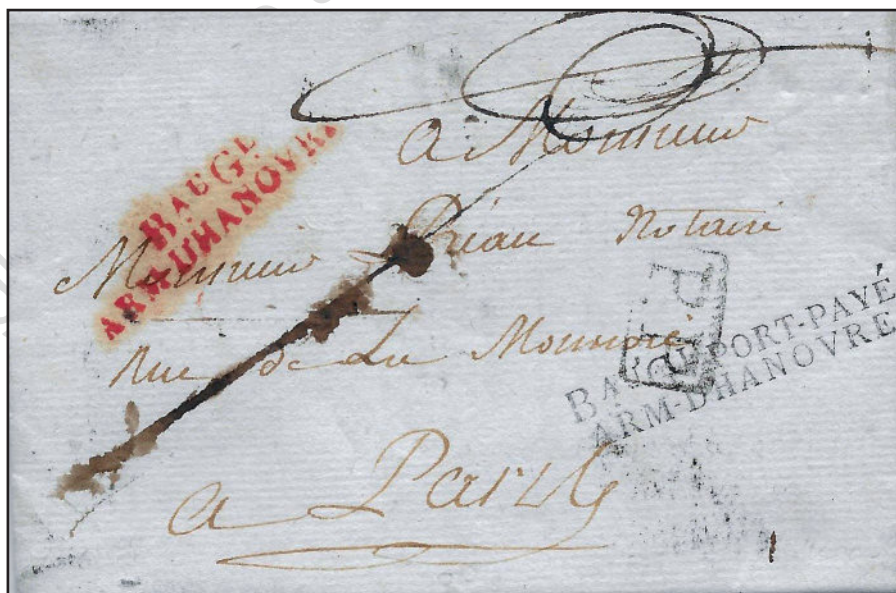 BAU GL
ARM-D'HANOVRE
a Monsieur
Monsieur notaire
Rue de La Monnoie
a Paris
P.P.
BAU GL PORT-PAYÉ
ARM-D'HANOVRE